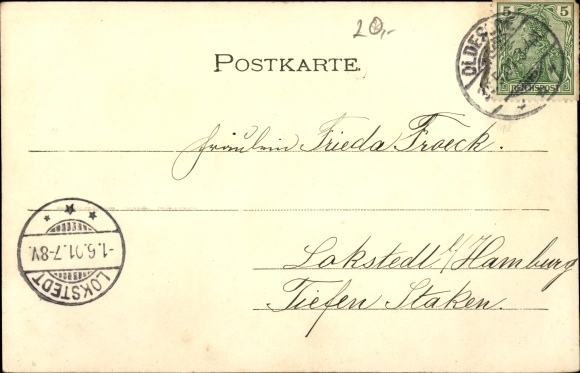 20,-
5 5
REICHSPOST
OLDESLOE
POSTKARTE.
Fräulein Frieda Froeck.
Lokstedt b/Hamburg
Tiefen Staken.
-1.6.01.7-8V.
LOKSTEDT